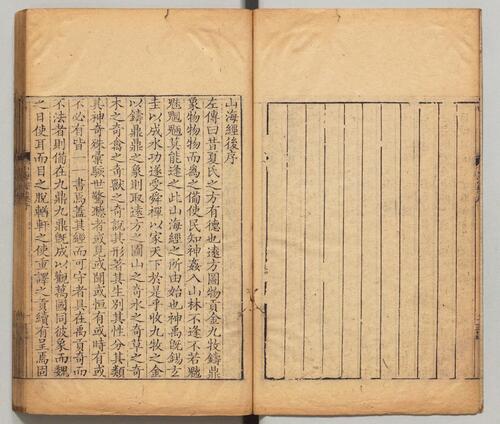 山海經後序
左傳曰昔夏氏之方有德也遠方圖物貢金九牧鑄鼎
象物物物而爲之備使民知神姦入山林不逢不若魑
魅魍魎莫能逢之此山海經之所由始也神禹旣錫玄
圭以成水功遂受舜禪以家天下於是乎收九牧之金
以鑄鼎鼎之象則取遠方之圖山之奇水之奇草之奇
木之奇禽之奇獸之奇說其形著其生别其性分其類
其神奇殊彙駭世驚聽者或見或聞或恒有或時有或
不必有皆一一書焉蓋其經而可守者具在禹貢奇而
不法者則備在九鼎九鼎旣成以觀萬國同彼象而魏
之日使耳而目之脫輶軒之使重譯之貢續有呈焉固